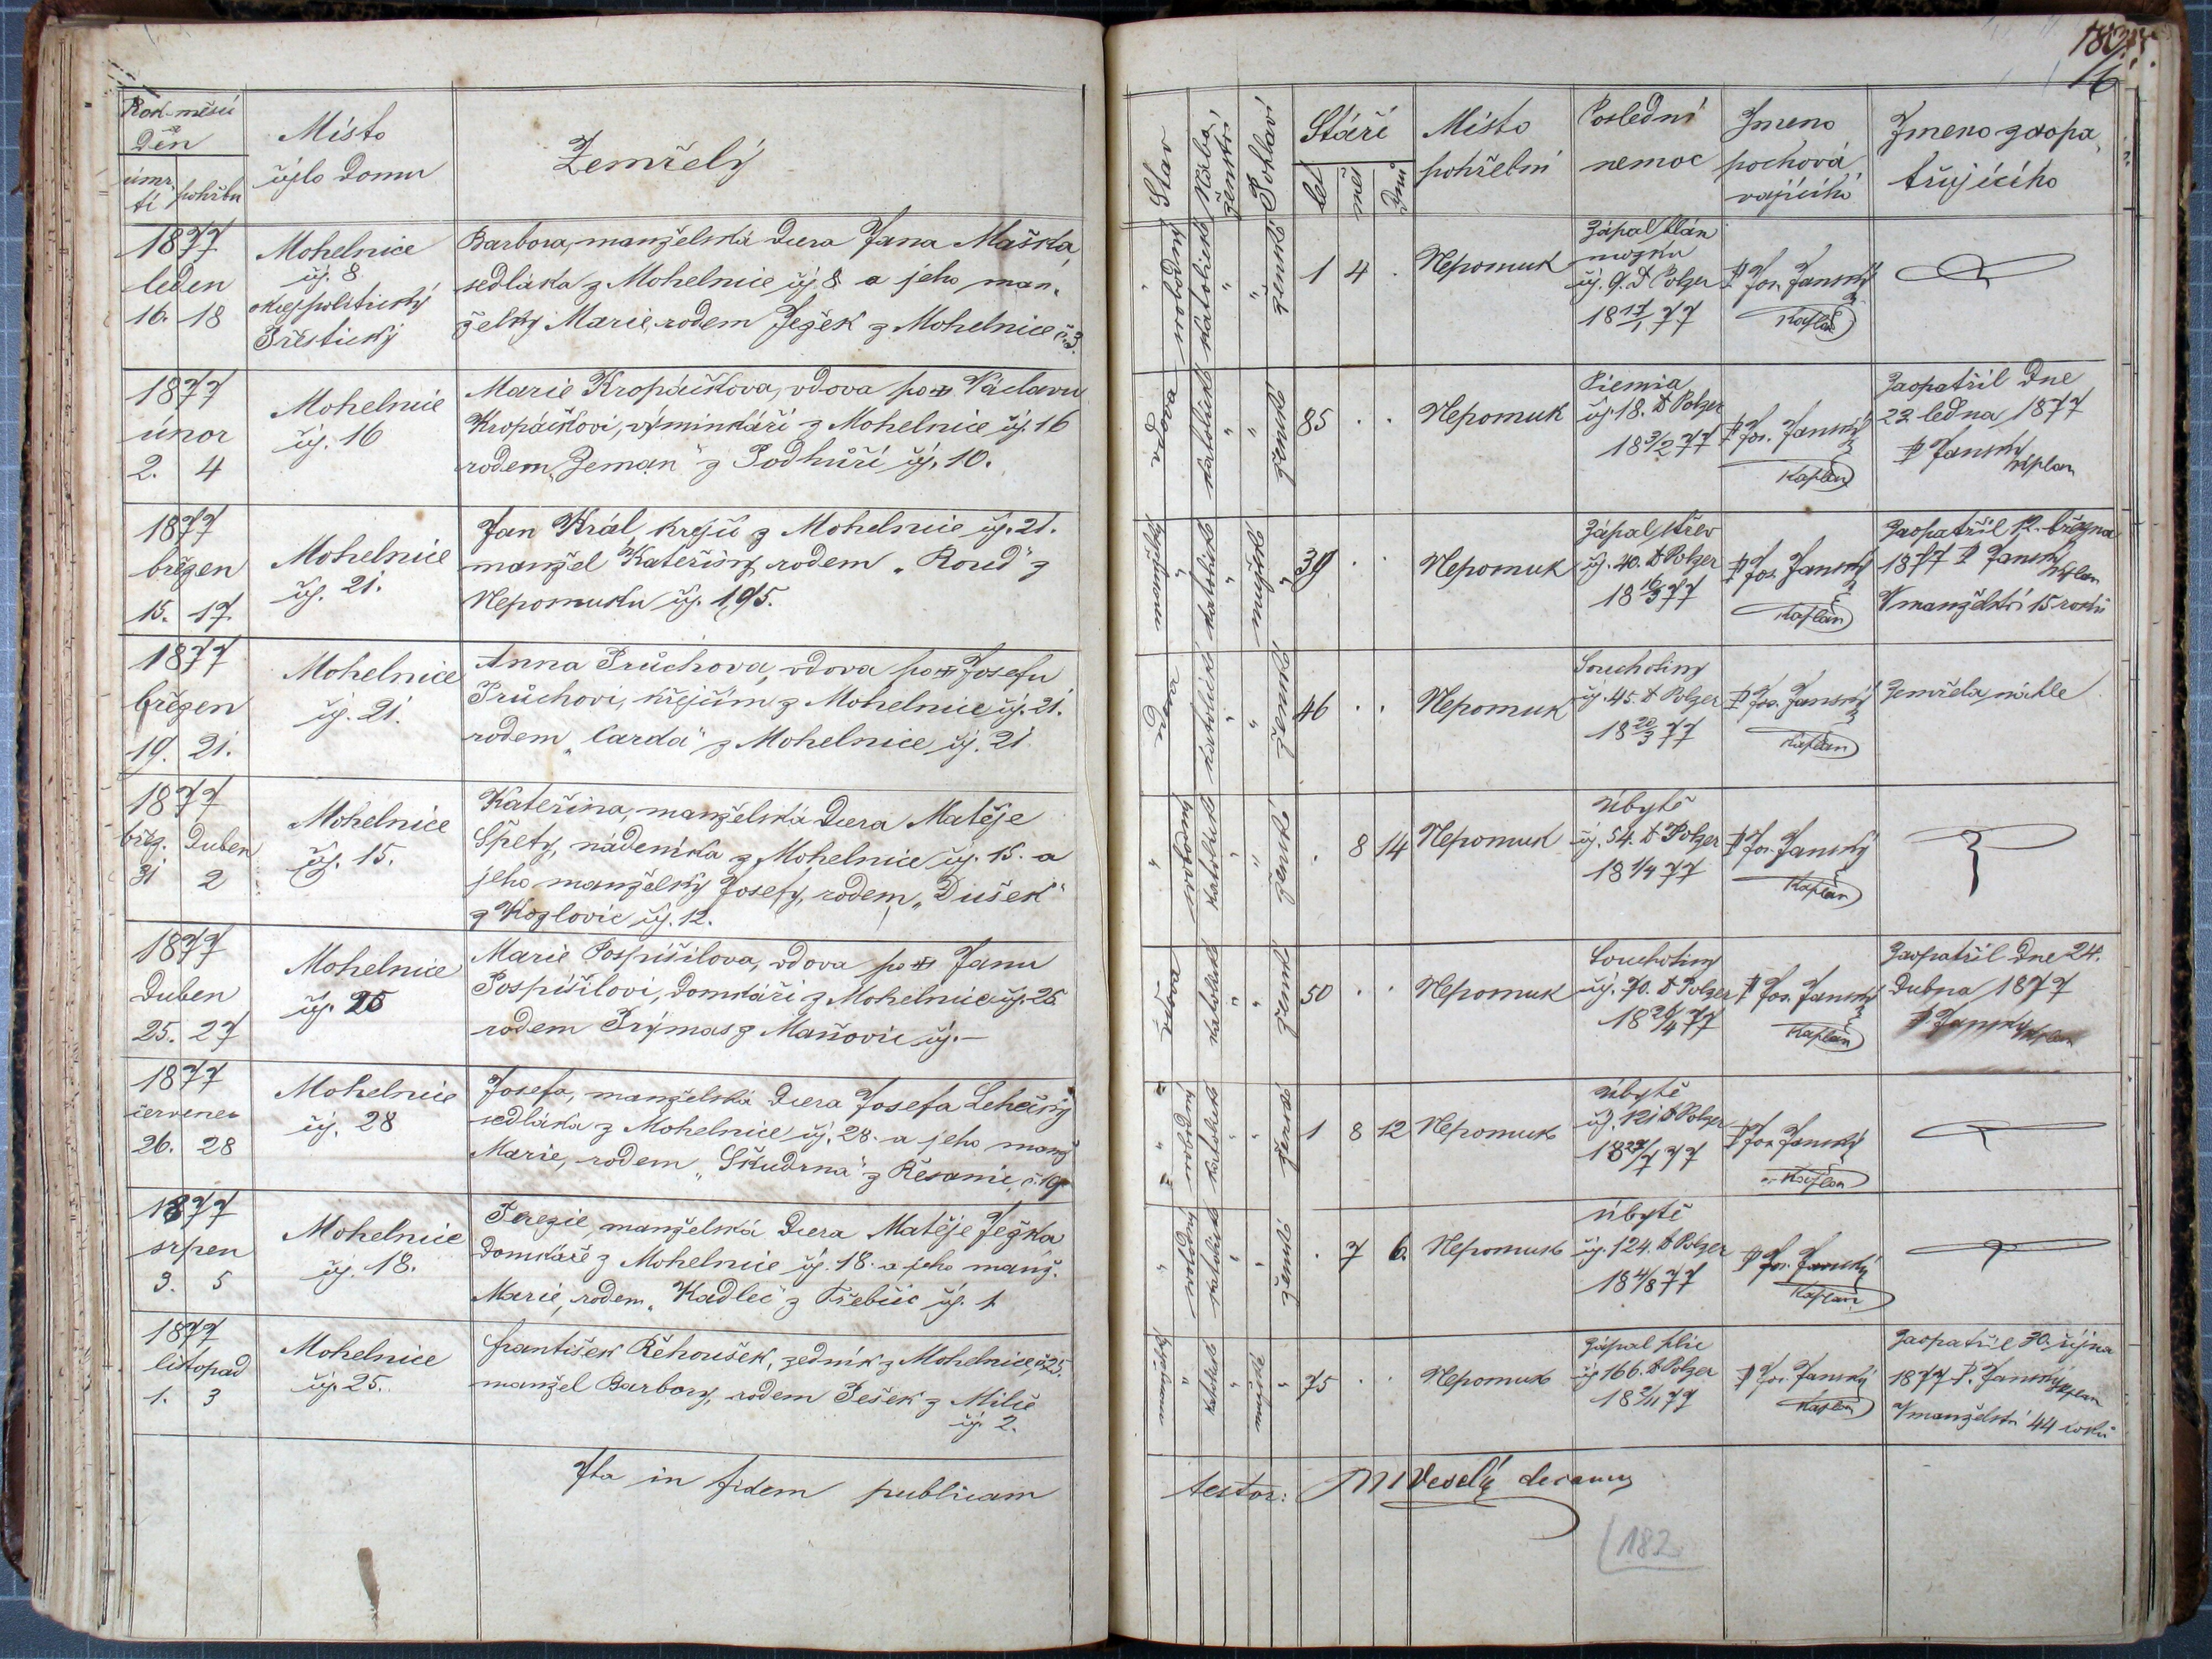 Rok-měsíc
Den
úmr- pohřbu
tí
Místo
čjslo domu
Zemřelý
1877
leden
16. 18
Mohelnice
čj. 8
okrej politický
Přestický
Barbora, manželská dcera Jana Maška,
sedláka z Mohelnice čj. 8 a jeho man-
želky Marie, rodem Ježek z Mohelnice č. 3.
1877
únor
2. 4
Mohelnice
čj. 16
Marie Kropáčkova, vdova po Václavu
Kropáčkovi, výminkáři z Mohelnice čj. 16
rodem „Zeman" z Podhůří čj. 10.
1877
březen
15. 17
Mohelnice
čj. 21.
Jan Král, krejčí z Mohelnice čj. 21.
manžel Kateřiny, rodem „Roud" z
Nepomuku čj. 195.
1877
březen
19. 21.
Mohelnice
čj. 21.
Anna Průchova, vdova po Josefu
Průchovi, krejčím z Mohelnice čj. 21.
rodem „Carda" z Mohelnice čj. 21
1877
břez. Duben
31 2
Mohelnice
čj. 15.
Kateřina, manželská dcera Matěje
Špety, nádeníka z Mohelnice čj. 15. a
jeho manželky Josefy, rodem „Dušek"
z Kozlovic čj. 12.
1877
Duben
25. 27
Mohelnice
čj. 26
Marie Pospíšilova, vdova po Janu
Pospíšilovi, domkáři z Mohelnice čj. 26
rodem Prýmas z Maňovic čj. —
1877
červenec
26. 28
Mohelnice
čj. 28
Josefa, manželská dcera Josefa Lehečky
sedláka z Mohelnice čj. 28. a jeho manž
Marie, rodem „Škudrna" z Řesanic, č. 19
1877
srpen
3. 5
Mohelnice
čj. 18.
Terezie, manželská dcera Matěje Ježka
domkáře z Mohelnice čj. 18. a jeho manž.
Marie, rodem „Kadlec" z Třebčic čj. 1
1877
listopad
1. 3
Mohelnice
čj. 25.
František Řehoušek, zedník z Mohelnice, č. 25.
manžel Barbory, rodem Pešek z Milče
čj. 2.
Ita in fidem publicam
182
16
Stav
Nábo-
ženství
Pohlaví
Stáří
let
měs
dnů
Místo
pohřební
Poslední
nemoc
Jmeno
pochová
vajícího
Jmeno zaopa,
třujícího
svobodný
katolické
ženské
1 4 .
Nepomuk
Zápal blán
mozku
čj. 9. D Polzer
18 17/1 77
P Jos. Janský
Kaplan
vdova
katolické
ženské
85 . .
Nepomuk
Piemia
čj. 18. D Polzer
18 3/2 77
P Jos. Janský
Kaplan
Zaopatřil Dne
23 ledna 1877
P Janský
Kaplan
katolické
mužské
39 . .
Nepomuk
Zápal střev
čj. 40. D Polzer
18 16/3 77
P Jos. Janský
Kaplan
Zaopatřil 12. března
1877 P Janský
Kaplan
V manželství 15 roků
vdova
katolické
ženské
46 . .
Nepomuk
Souchotiny
čj. 45. D Polzer
18 20/3 77
P Jos. Janský
Kaplan
Zemřela náhle
svobodný
katolické
ženské
. 8 14
Nepomuk
úbytě
čj. 54. D Polzer
18 1/4 77
P Jos. Janský
Kaplan
vdova
katolické
ženské
50 . .
Nepomuk
Souchotiny
čj. 70. D Polzer
18 26/4 77
P Jos. Janský
Kaplan
Zaopatřil Dne 24.
Dubna 1877
P. Janský Kaplan
svobodný
katolické
ženské
1 8 12
Nepomuk
úbytě
čj. 121 D Polzer
18 27/7 77
P Jos Janský
Kaplan
svobodný
katolické
ženské
. 7 6.
Nepomuk
úbytě
čj. 124. D Polzer
18 4/8 77
P Jos. Janský
Kaplan
katolické
mužské
75 . .
Nepomuk
Zápal plic
čj 166. D Polzer
18 2/11 77
P Jos. Janský
Kaplan
Zaopatřil 30. října
1877 P. Janský
Kaplan
V manželství 44 roků
testor: M Veselý decanus
182